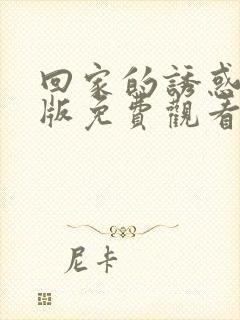 回家的誘惑
版免費觀看
尼卡